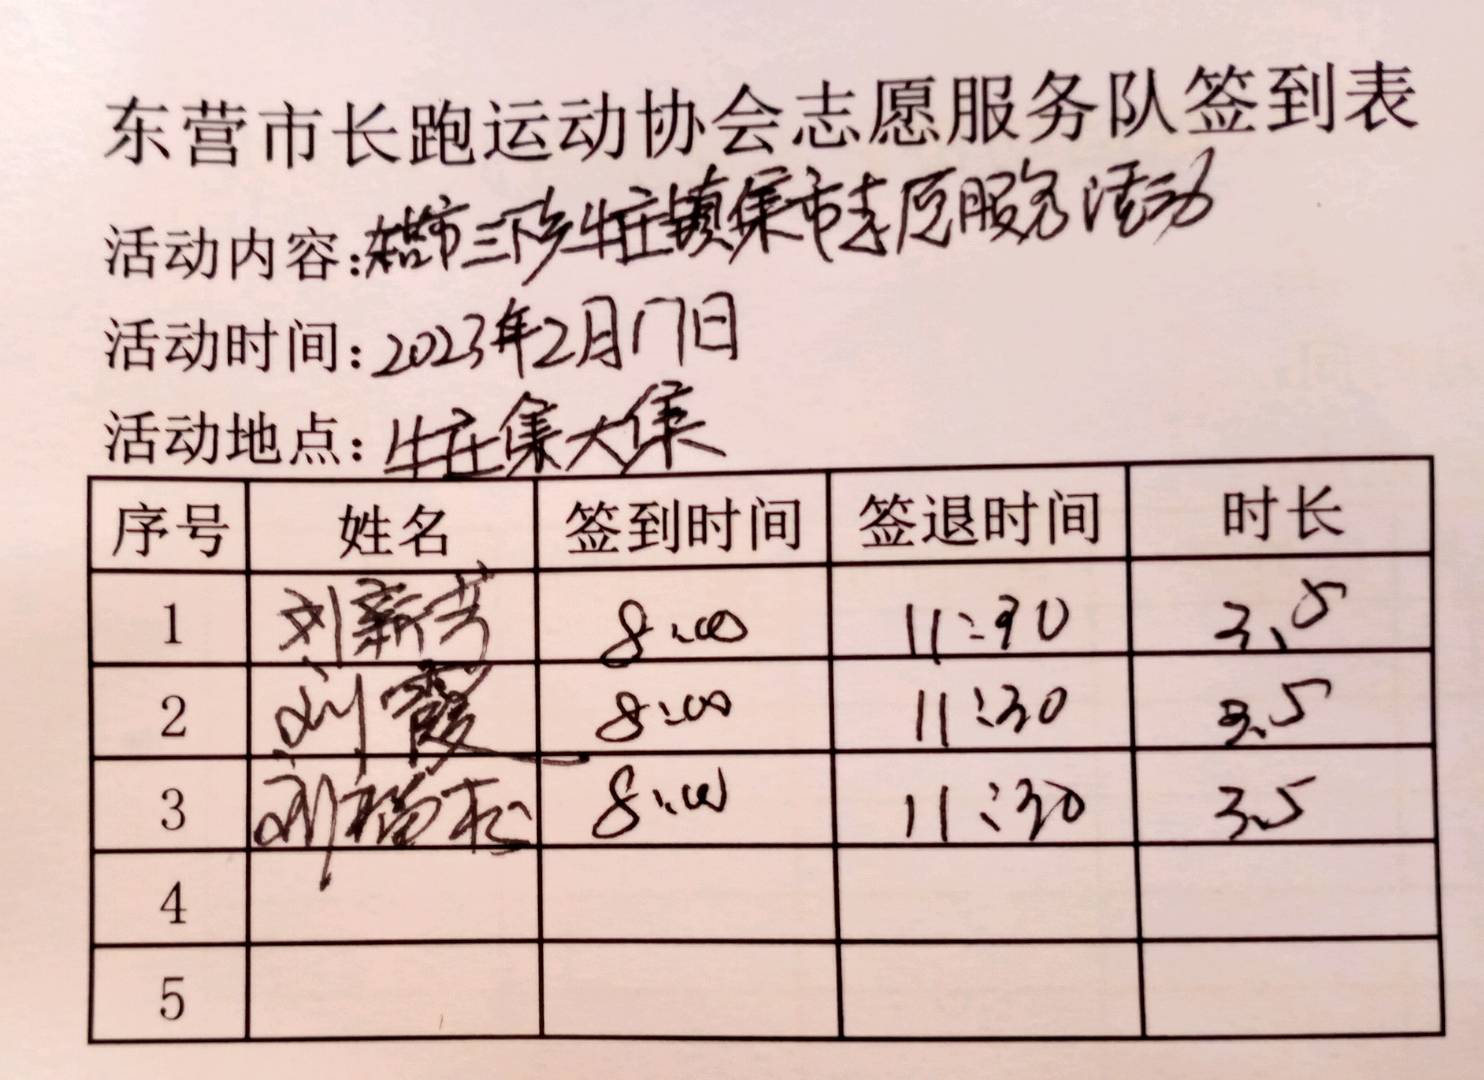 东营市长跑运动协会志愿服务队签到表
活动内容:市三下乡牛庄镇集市志愿服务活动
活动时间:2023年2月17日
活动地点:牛庄集大集
序号 姓名 签到时间 签退时间 时长
1 刘新芳 8:00 11:30 3.5
2 刘霞 8:00 11:30 3.5
3 刘福松 8:00 11:30 3.5
4
5